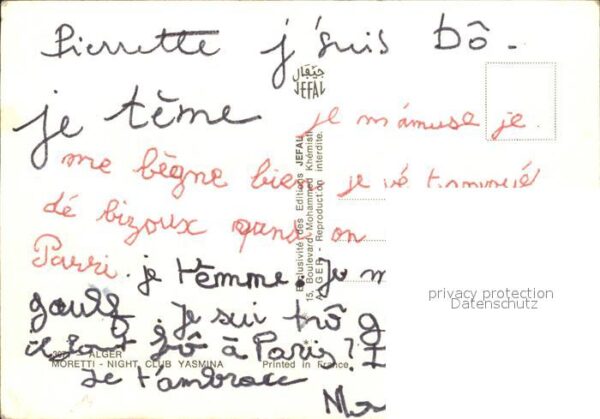 Pierrette j'suis bô -
je tême
je m'amuse je
me bègne bien je vé
dé bizoux quand on
Parri. je t'emme. Je
Je sui trô
à Paris?
Je t'ambrace
جيفال
JEFAL
Exclusivité des Editions JEFAL
15, Boulevard Mohammed Khémisti
ALGER - Reproduction interdite.
privacy protection
Datenschutz
ALGER
MORETTI - NIGHT CLUB YASMINA Printed in France